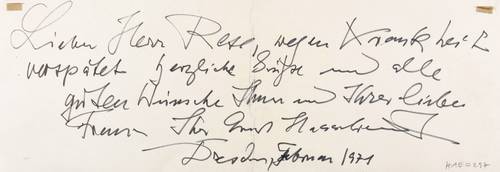 Lieber Herr Rese, wegen Krankheit
verspätet herzliche Grüße und alle
guten Wünsche Ihnen und Ihrer lieben
Frau Ihr Ernst Hassebrauk
Dresden, Februar 1971